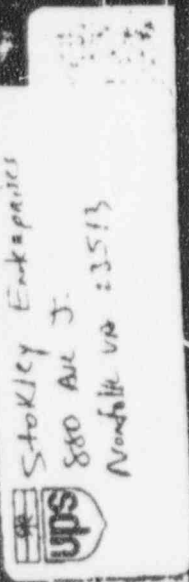 Stokley Enterprises
880 Ave J.
Norfolk VA 23513
ups